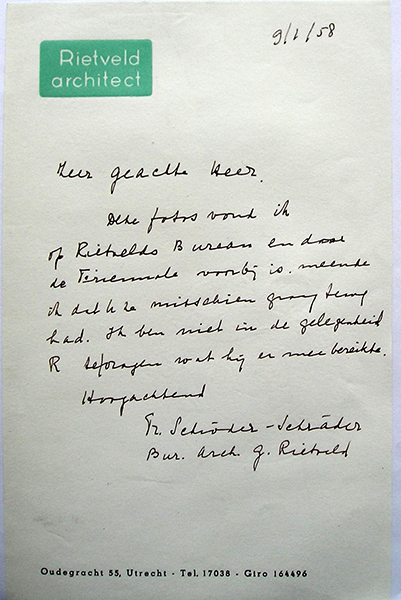 Rietveld
architect
9/1/58
Zeer geachte Heer.
Deze fotos vond ik
op Rietvelds Bureau en daar
de Triennale voorbij is. meende
ik dat U ze misschien graag terug
had. Ik ben niet in de gelegenheid
R te vragen wat hij er mee bereikte.
Hoogachtend
Tr. Schröder-Schräder
Bur. Arch G. Rietveld
Oudegracht 55, Utrecht - Tel. 17038 - Giro 164496